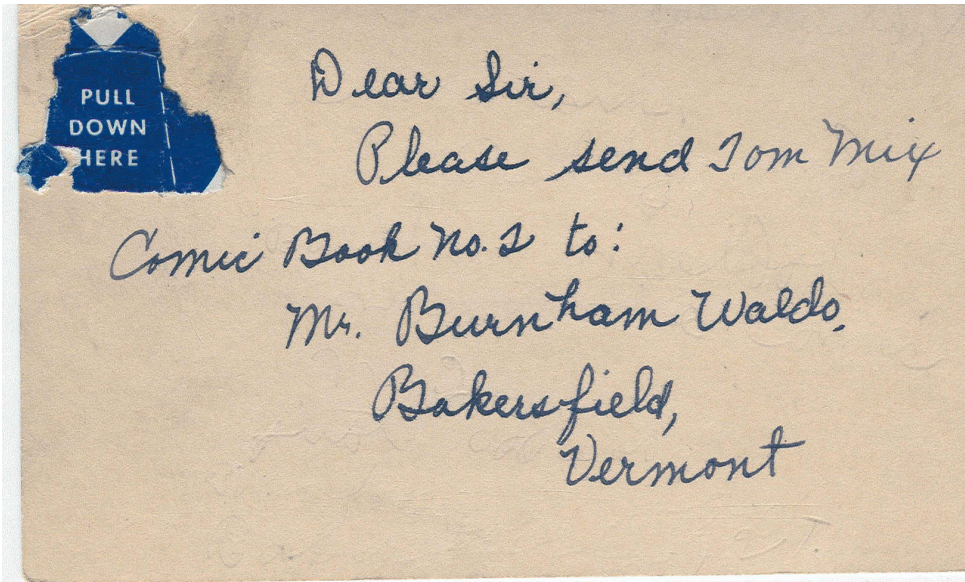 PULL
DOWN
HERE
Dear Sir,
Please send Tom Mix
Comic Book No. 2 to:
Mr. Burnham Waldo,
Bakersfield,
Vermont